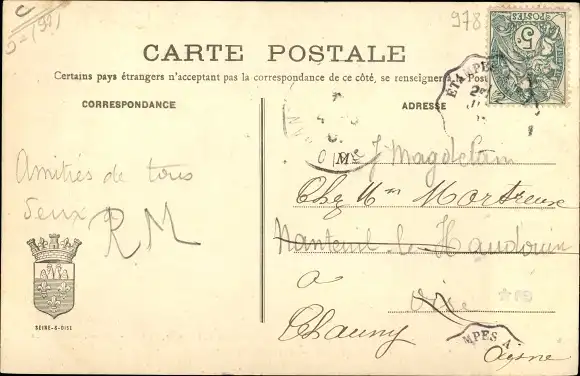 978
CARTE POSTALE
Certains pays étrangers n'acceptant pas la correspondance de ce côté, se renseigner à la Poste
CORRESPONDANCE
ADRESSE
POSTES
5c
ETAMPES
Amitiés de tous
deux
RM
SEINE-&-OISE
M J Magdelain
Chez Mm Mortreux
Nanteuil le Haudouin
à
Oise
Chauny
MPES A
Aysne